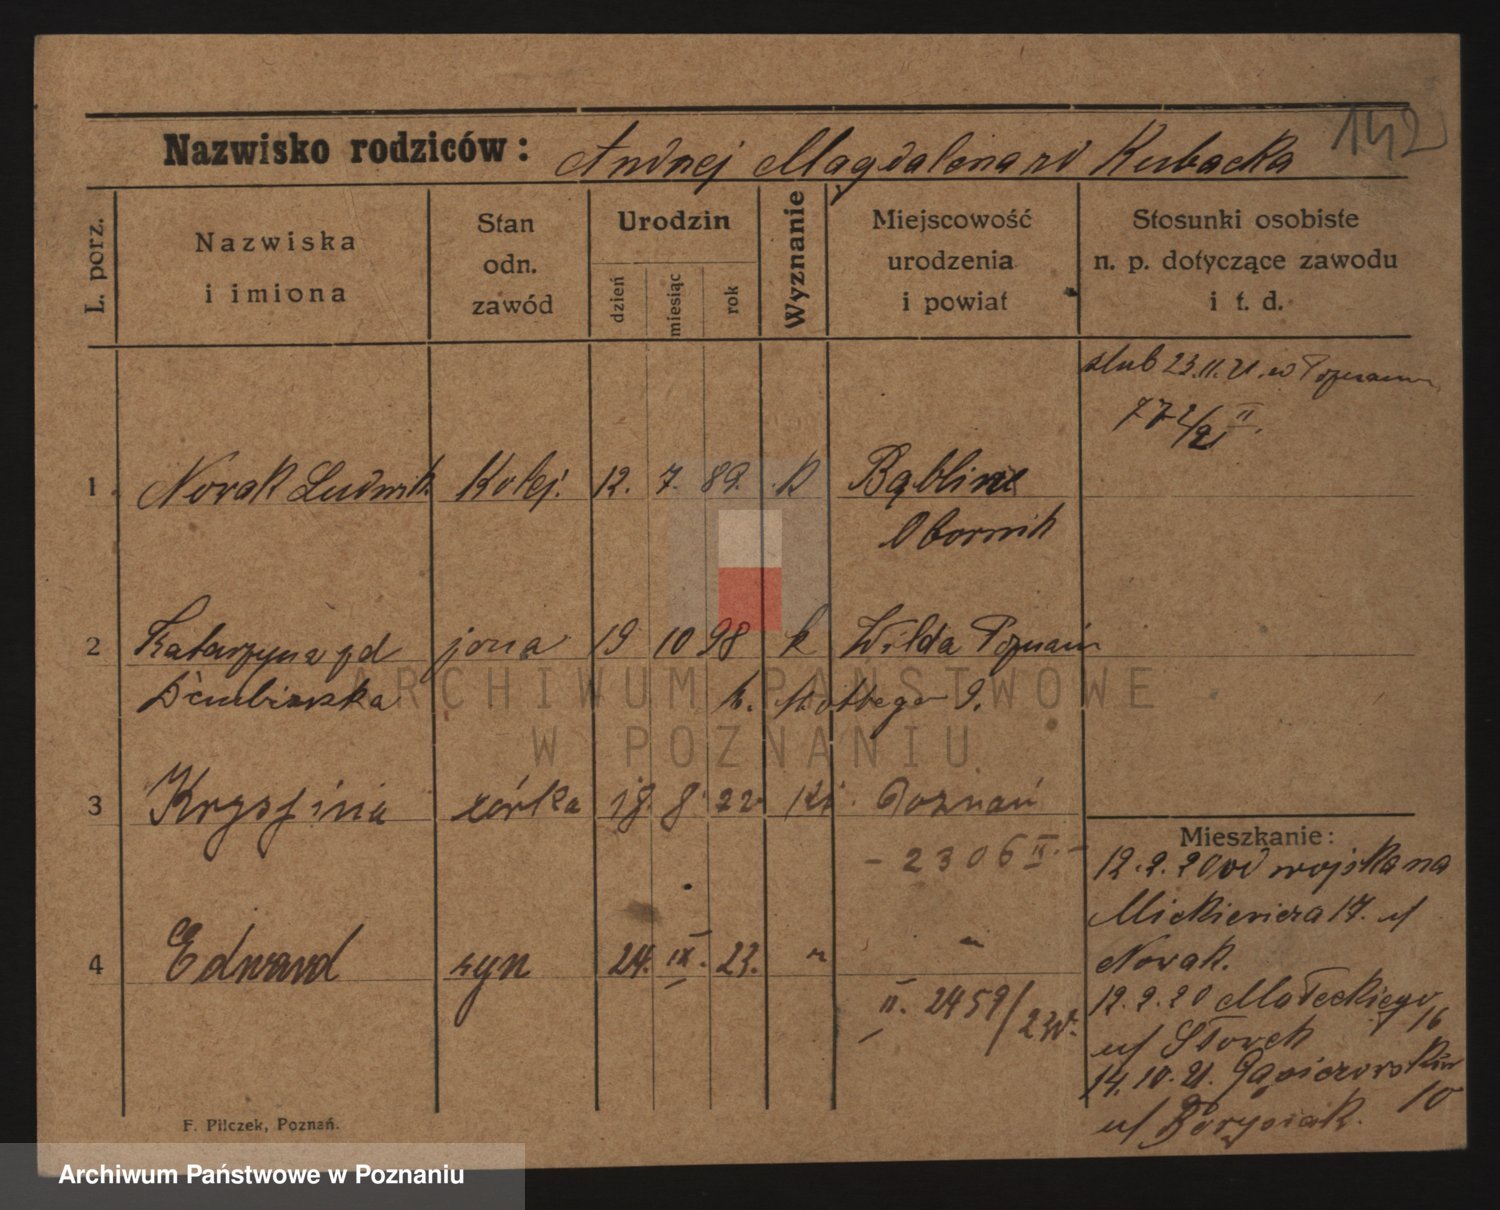 142
Nazwisko rodziców: Andrzej Magdalena zd Kubacka
L. porz.
Nazwiska i imiona
Stan odn. zawód
Urodzin
dzień
miesiąc
rok
Wyznanie
Miejscowość urodzenia i powiat
Stosunki osobiste n. p. dotyczące zawodu i t. d.
ślub 23.11.21. w Poznaniu
772/21 II.
1 Nowak Ludwik Kolej. 12. 7. 89. k
Obornik
2 Katarzyna zd żona 19 10 98 k Wilda Poznań
9.
3 Krystyna córka 18. 8. 22 kt. Poznań
- 2306 II. -
4 Edward syn 24. IX. 23. "
II. 2459/23
Mieszkanie:
12.2.20 od wojska na
Mickiewicza 17. u/
Nowak.
12.2.20 Małeckiego 16
u/
14.10.21. 10
u/ Borysiak.
F. Pilczek, Poznań.
ARCHIWUM PAŃSTWOWE
W POZNANIU
Archiwum Państwowe w Poznaniu